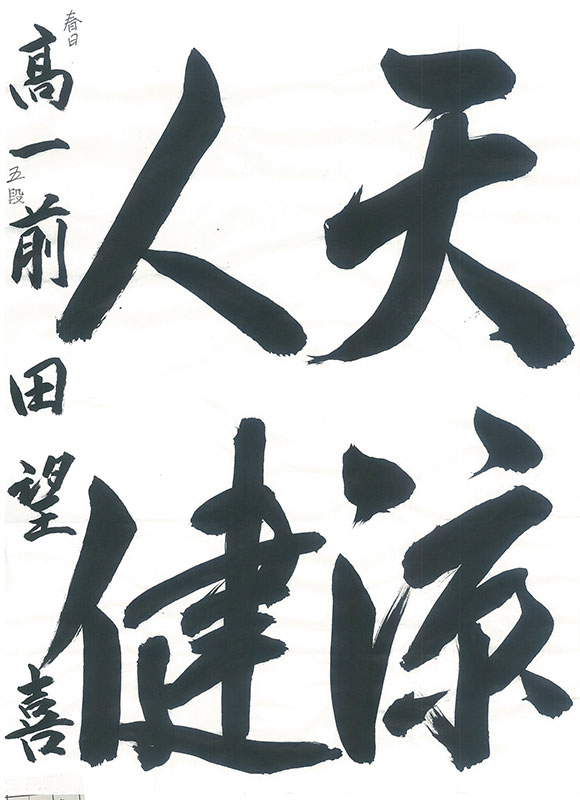 天涼
人健
春日
高一前田望喜
五段